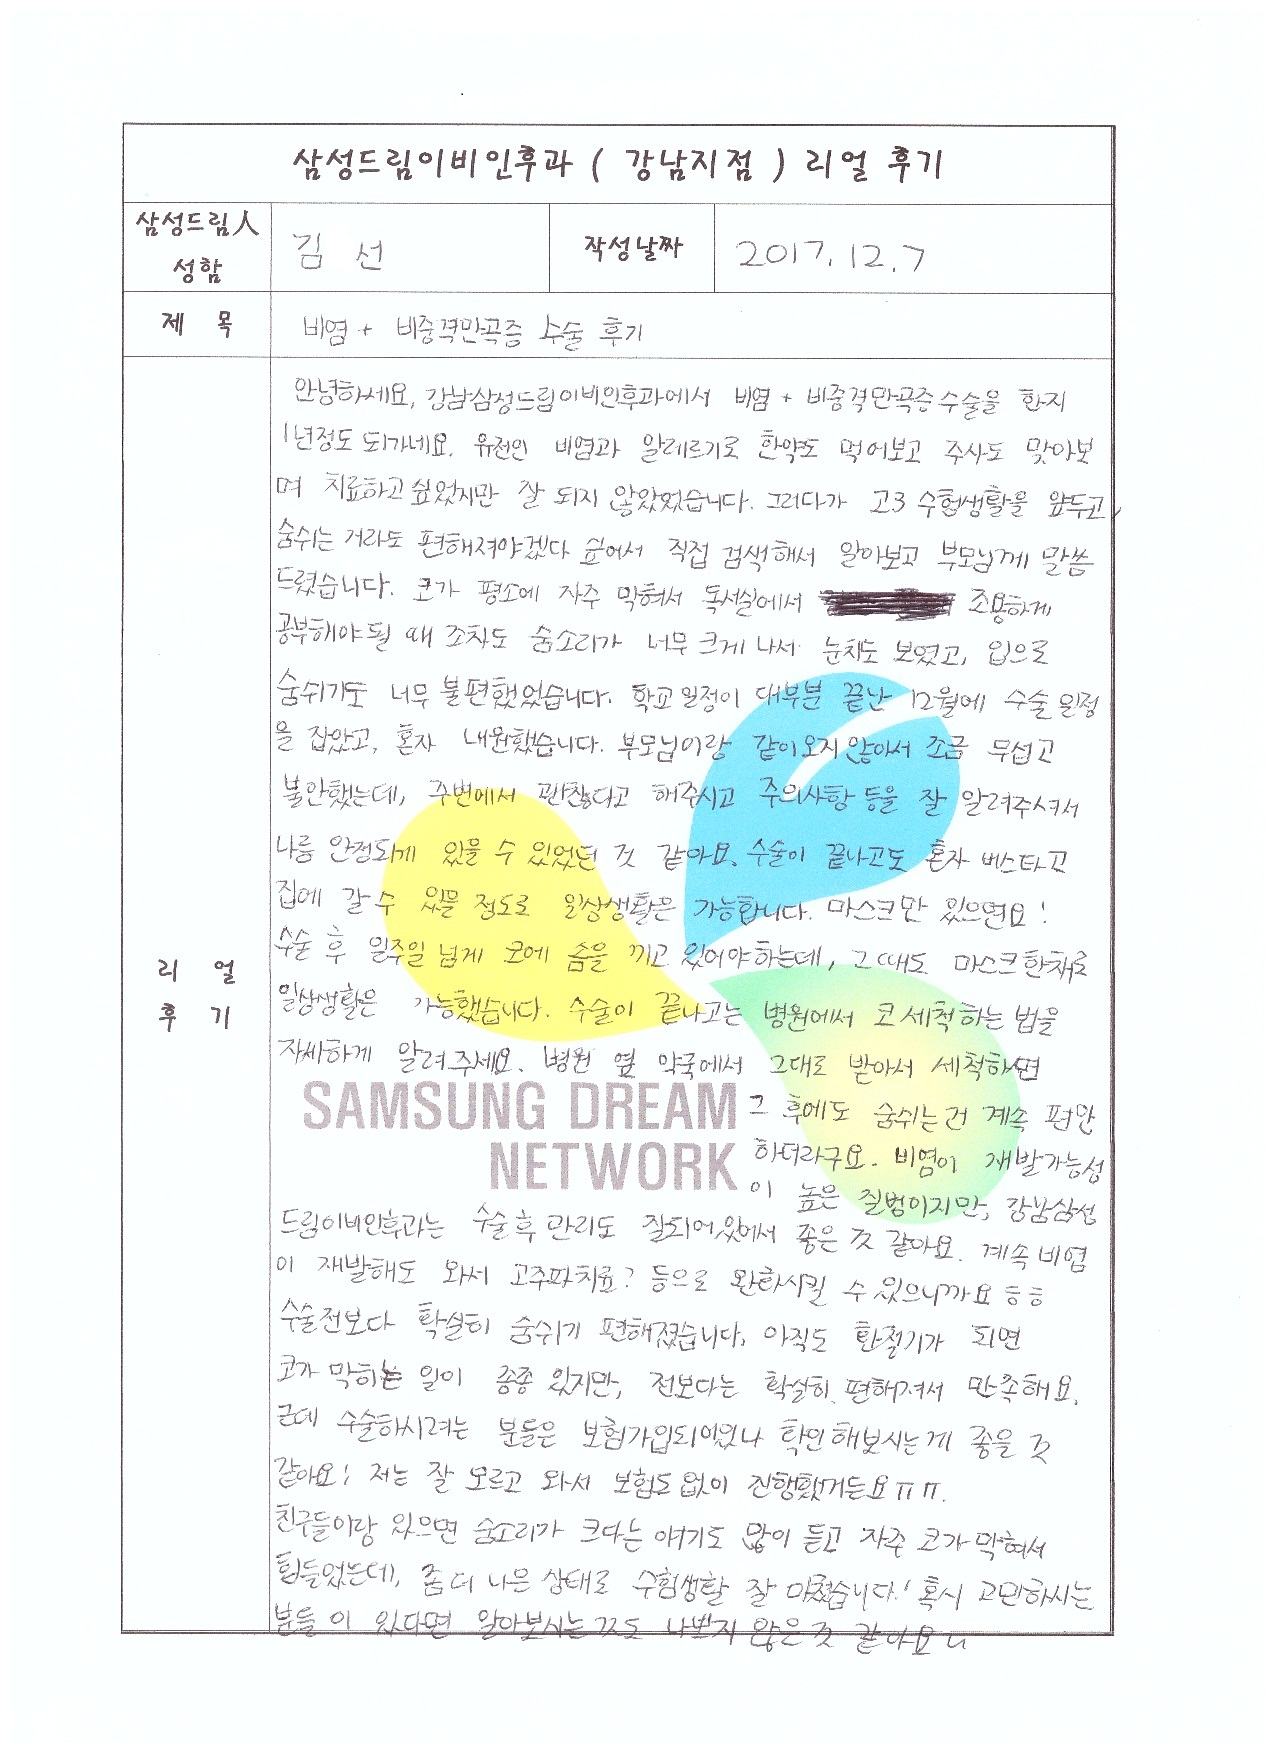 삼성드림이비인후과 ( 강남지점 ) 리얼 후기
삼성드림人
성함
김 선
작성날짜
2017. 12. 7
제 목
비염 + 비중격만곡증 수술 후기
리 얼
후 기
안녕하세요, 강남삼성드림이비인후과에서 비염 + 비중격만곡증수술을 한지
1년정도 되가네요. 유전인 비염과 알레르기로 한약도 먹어보고 주사도 맞아보
며 치료하고 싶었지만 잘 되지 않았었습니다. 그러다가 고3 수험생활을 앞두고,
숨쉬는 거라도 편해져야겠다 싶어서 직접 검색해서 알아보고 부모님께 말씀
드렸습니다. 코가 평소에 자주 막혀서 독서실에서 조용하게
공부해야될 때 조차도 숨소리가 너무 크게 나서 눈치도 보였고, 입으로
숨쉬기도 너무 불편했었습니다. 학교 일정이 대부분 끝난 12월에 수술 일정
을 잡았고, 혼자 내원했습니다. 부모님이랑 같이오지 않아서 조금 무섭고
불안했는데, 주변에서 괜찮다고 해주시고 주의사항 등을 잘 알려주셔서
나름 안정되게 있을 수 있었던 것 같아요. 수술이 끝나고도 혼자 버스타고
집에 갈 수 있을 정도로 일상생활은 가능합니다. 마스크만 있으면요!
수술 후 일주일 넘게 코에 솜을 끼고 있어야하는데, 그때도 마스크한채로
일상생활은 가능했습니다. 수술이 끝나고는 병원에서 코세척하는 법을
자세하게 알려주세요. 병원 옆 약국에서 그대로 받아서 세척하면
그 후에도 숨쉬는건 계속 편안
하더라구요. 비염이 재발가능성
이 높은 질병이지만, 강남삼성
SAMSUNG DREAM
NETWORK
드림이비인후과는 수술 후 관리도 잘되어있어서 좋은 것 같아요. 계속 비염
이 재발해도 와서 고주파치료? 등으로 완화시킬 수 있으니까요 ㅎㅎ
수술전보다 확실히 숨쉬기 편해졌습니다. 아직도 환절기가 되면
코가 막히는 일이 종종 있지만, 전보다는 확실히 편해져서 만족해요.
근데 수술하시려는 분들은 보험가입되어있나 확인해보시는게 좋을 것
같아요! 저는 잘 모르고 와서 보험도 없이 진행했거든요ㅠㅠ.
친구들이랑 있으면 숨소리가 크다는 얘기도 많이 듣고 자주 코가 막혀서
힘들었는데, 좀 더 나은 상태로 수험생활 잘 마쳤습니다! 혹시 고민하시는
분들이 있다면 알아보시는것도 나쁘지 않은것 같아요